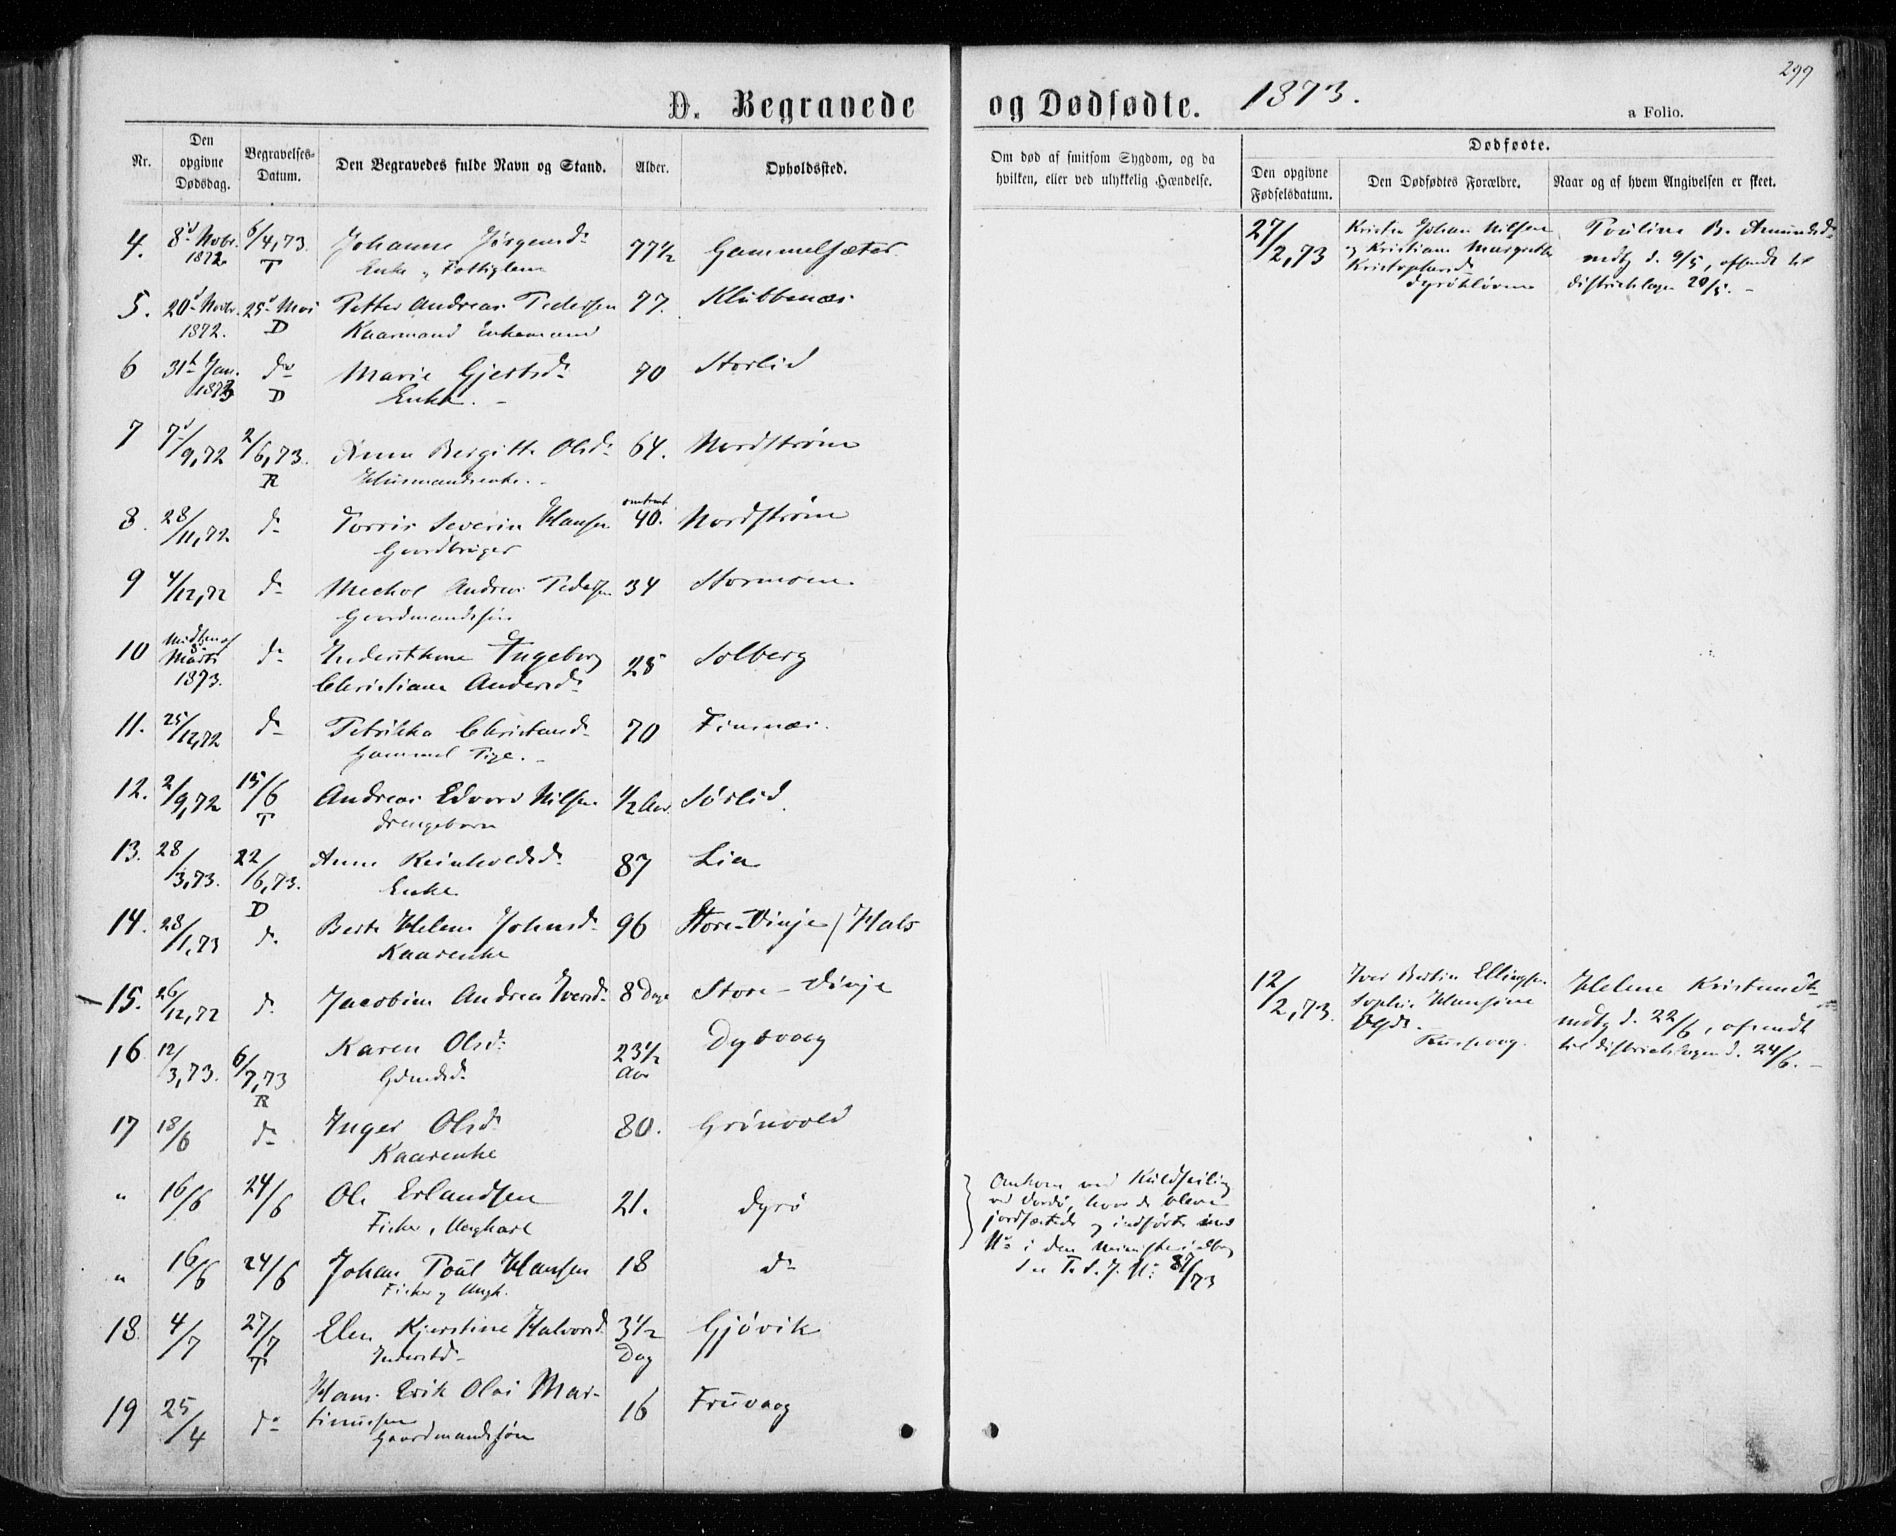 299
D. Begravede og Dødfødte. 1873.
a Folio.
Nr.
Den opgivne Dødsdag.
Begravelses-Datum.
Den Begravedes fulde Navn og Stand.
Alder.
Opholdssted.
Om død af smitsom Sygdom, og da hvilken, eller ved ulykkelig Hændelse.
Dødfødte.
Den opgivne Fødselsdatum.
Den Dødfødtes Forældre.
Naar og af hvem Angivelsen er skeet.
4. 8d Novbr. 1872 6/4,73. T Johanne Jørgensdr 77 1/2 Gammelsæter
Enke, Fattiglem
27/2,73 Kristen Johan Nilsen
og Kristiane Margrethe
Kristophersdr
Dyröhløven
Pouline B. Amundsdr
mdtg d. 9/5, afsendt til
districtslægen 20/5. -
5. 20d Novbr. 1872. 25d Mai D Petter Andreas Pedersen 77. Klubbenæs
Kaarmand Enkemand
6 31te Jan. 1873 do D Marie Gjertsdr 90 Storlid
Enke. -
7 7d/9,72 2/6,73. R Anne Bergitte Olsdr 64. Nordstrøm
Husmandsenke. -
8. 28/11,72 do Torris Severin Hansen omtrent 40. Nordstrøm
Gaardbruger
9 4/12,72 do Mechol Andreas Pedersen 34 Stormoen.
Gaardmandssøn
10 Midten af Marts 1873. do Inderstkone Ingeborg 25 Solberg
Christiane Andersdr
11. 25/12,72 do Petrikka Christensdr 70 Finsnæs.
Gammel Pige. -
12. 2/9,72 15/6 T Andreas Edvard Nilsen 1/2 Aar Sörlid
Drengebarn
13. 28/3,73. 22/6,73. D Anne Reinholdsdr 87 Lia
Enke
14. 28/1,73 do Berte Helene Johnsdr 96 Store-Vinje / Hals
Kaarenke
15. 26/12,72 do Jacobine Andrea Iversdr 8 Dage Store-Vinje
12/2,73. Iver Bertin Ellingsen
Sophie Hansine
Olsdr.
Helene Kristiansdr
mdtg d. 22/6, afsendt
til districtslægen d. 24/6. -
16 12/3,73. 6/7,73 R Karen Olsdr 23 1/2 Aar Dybvaag
Gdmdsdr
17 18/6 do Inger Olsdr 80. Grönvold
Kaarenke
" 16/6 24/6 Ole Erlandsen 21. Dyrö
Fisker, Ungkarl
Omkom ved Kuldseiling
jordfæstede og indførte
" 16/6 24/6 Johan Poul Hansen 18 do
Fisker og Ungk.
No i den
87/73
18. 4/7 27/7 T Elen Kjerstine Halvorsdr 3 1/2 Dag Gjövik
Inderstdr
19 25/4 do Hans Erik Olai Mar- 16 Fruvaag
tinussen
Gaardmandssøn